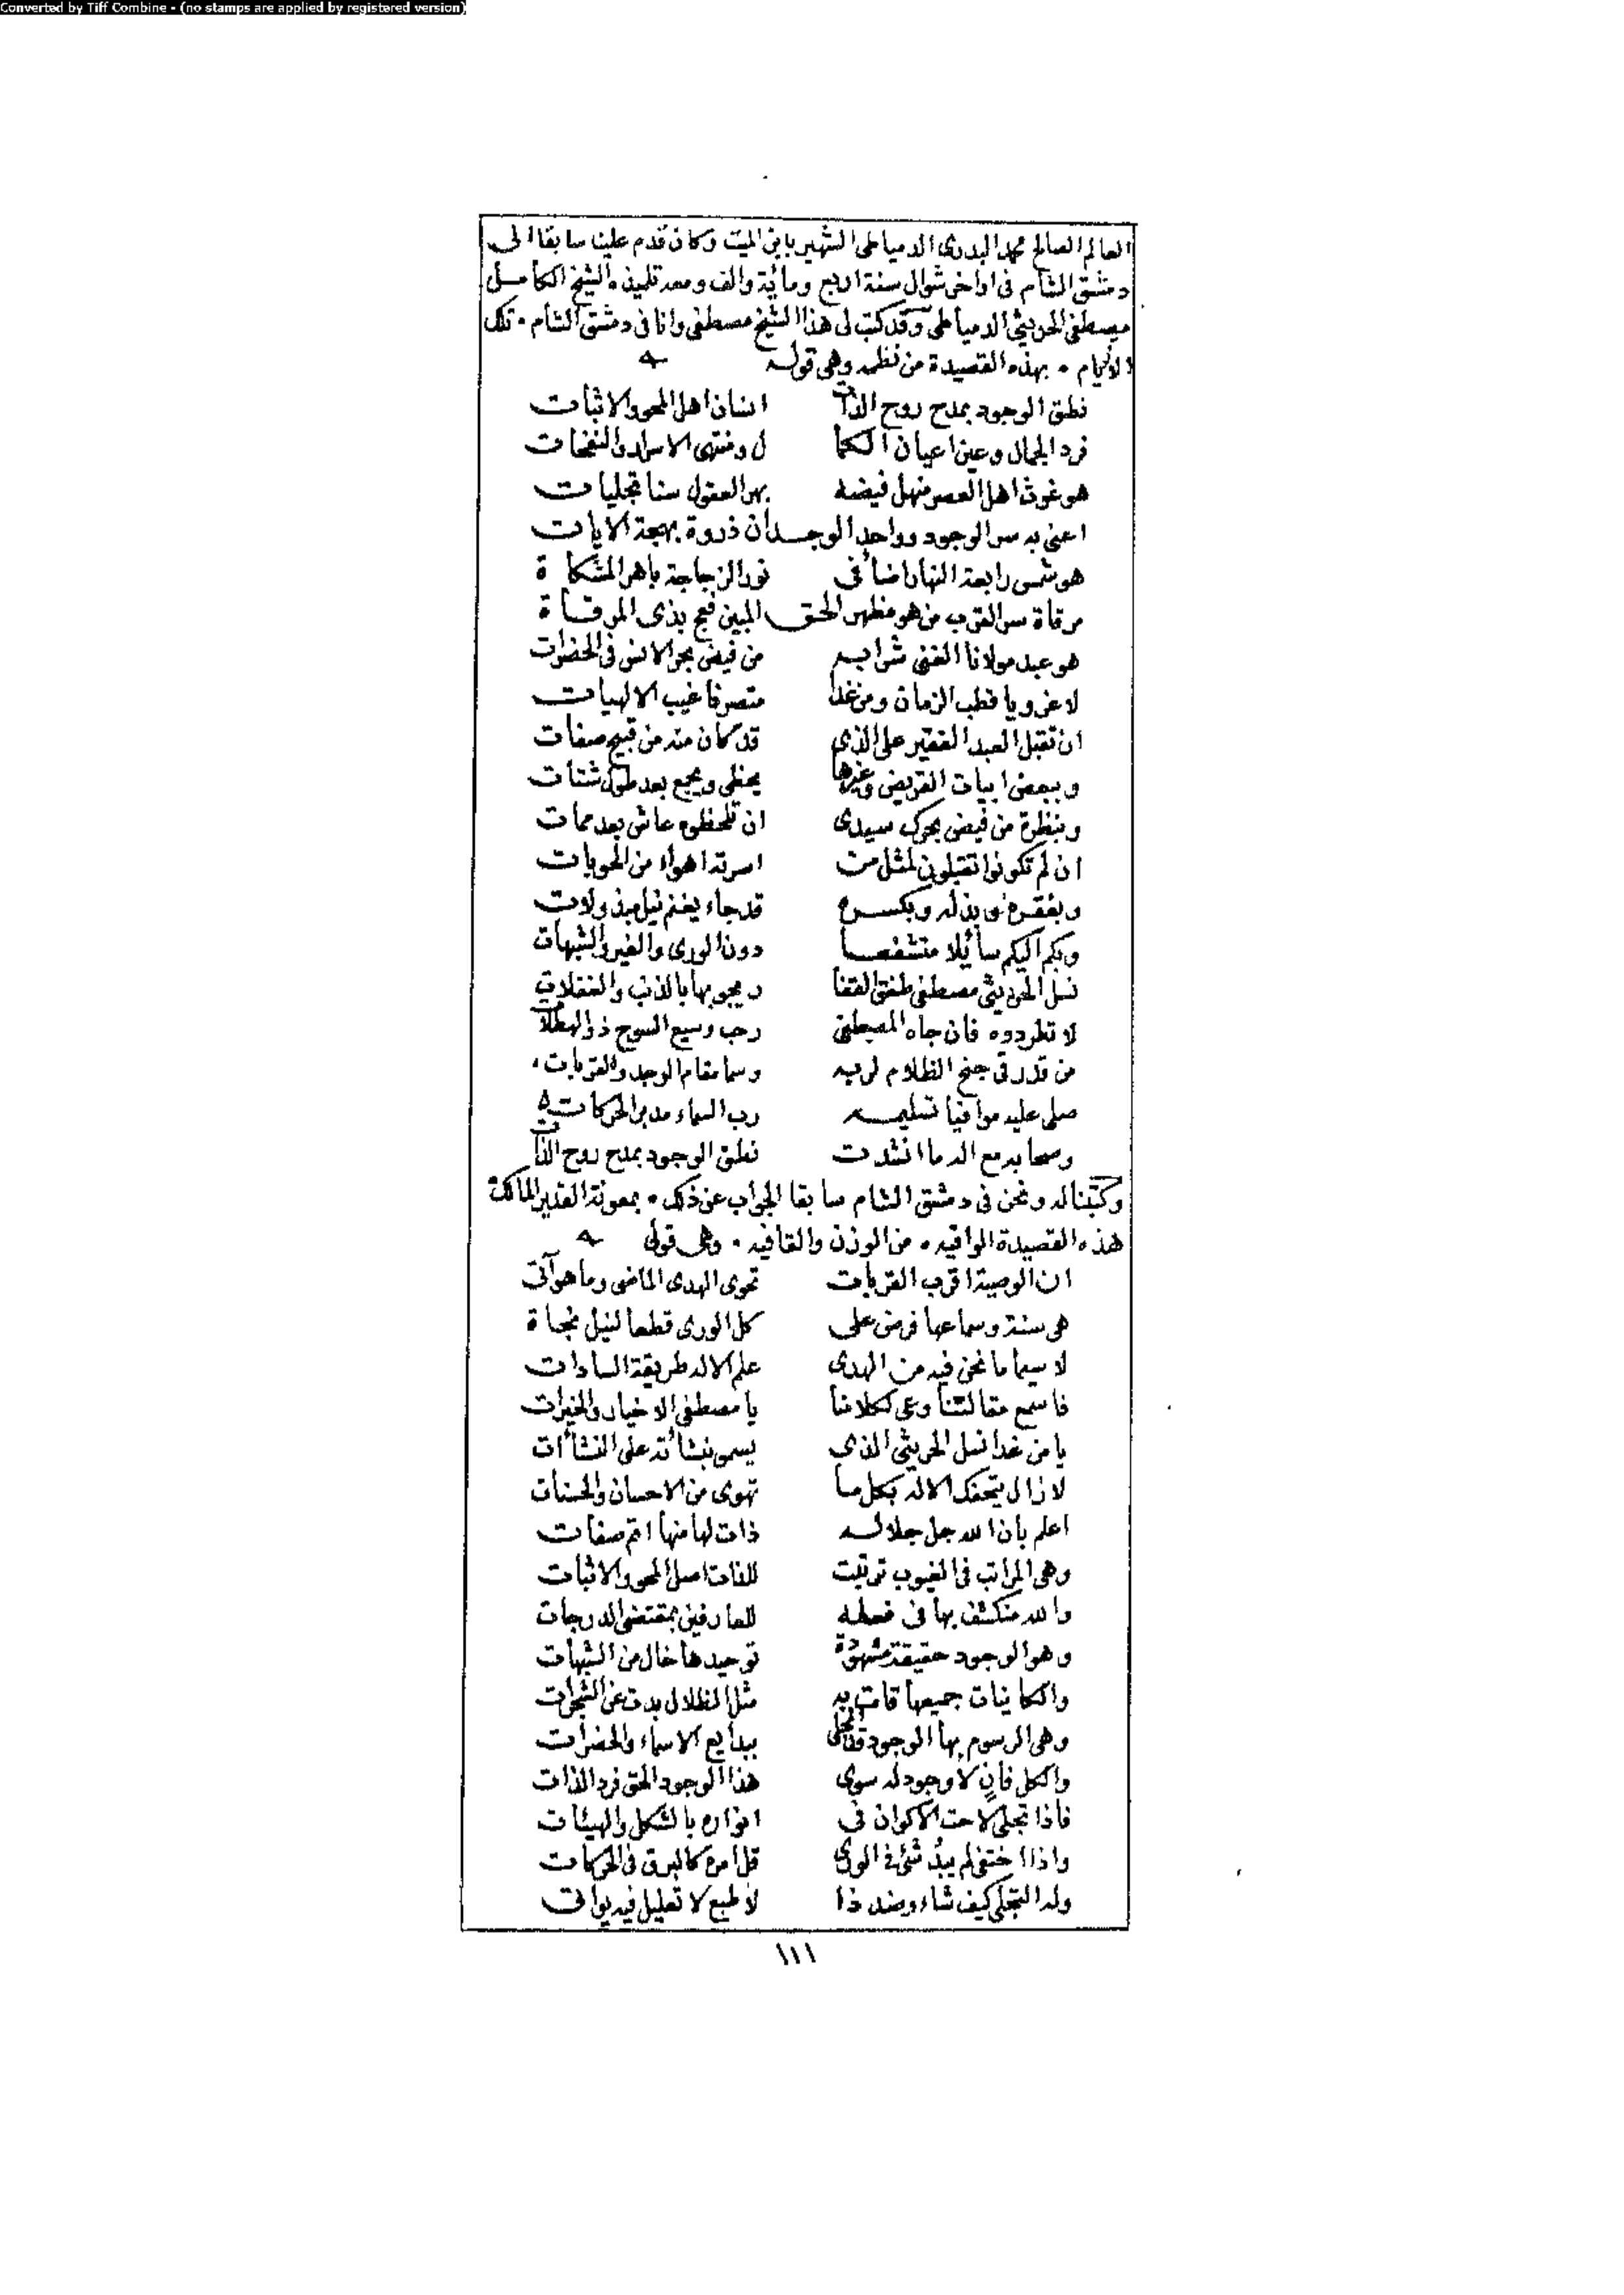 Converted by Tiff Combine - (no stamps are applied by registered version)
العالم الصالح محمد البدرى الدمياطى الشهير بابن الميت وكان قدم علينا سابقا الى
دمشق الشام فى اواخر شوال سنة اربع ومائة والف ومعه تلميذه الشيخ الكامل
مصطفى الحريثى الدمياطى وقد كتب لى هذا الشيخ مصطفى وانا فى دمشق الشام ۰ تلك
الايام ۰ بهذه القصيدة من نظمه وهى قوله
نطق الوجود بمدح روح الذات انسان اهل المحو والاثبات
فرد الجمال وعين اعيان الكما ل ومنتهى الاسرار والنفحات
هو غوث اهل العصر منهل فيضه بهر العقول سنا تجليات
اعنى به سر الوجود وواحد الوجدان ذروة بهجة الايات
هو شمس رابعة النهار اضا فى نور الزجاجة باهر المشكاة
مرقاة سر القرب من هو مظهر الحق المبين فعج بذى المرقاة
هو عبد مولانا الغنى شرابه من فيض بحر الانس فى الحضرات
لا غرو يا قطب الزمان ومن غدا متصرفا غيب الالهيات
ان تقبل العبد الفقير على الذى قد كان منه من قبيح صفات
وببعض ابيات القريض وغيرها يحظى ويجمع بعد طول شتات
وبنظرة من فيض بحرك سيدى ان تلحظوه عاش بعد ممات
ان لم تكونوا تقبلون لمثل من اسرته اهواء من الحوبات
وبفقره وبذله وبكسره قد جاء يغنم نيل
وبكم اليكم سائلا متشفعا دون الورى والغير والشبهات
نسل الحريثى مصطفى طفق القفا بالذنب والغفلات
لا تطردوه فان جاه المصطفى رحب وسيع السوح ذو
من قد رقى جنح الظلام لربه وسما مقام الوجد والقربات
صلى عليه موافيا تسليمه رب السماء مدبر الحركات
بدمع الد ما انشدت نطق الوجود بمدح روح الذات
وكتبنا له ونحن فى دمشق الشام سابقا الجواب عن ذلك ۰ بمعونة القدير المالك
هذه القصيدة الوافيه ۰ من الوزن والقافيه ۰ وهى قولى
ان الوصية اقرب القربات تحوى الهدى الماضى وما هو آتى
هى سنة وسماعها فرض على كل الورى قطعا لنيل نجاة
لا سيما ما نحن فيه من الهدى علم الاله طريقة السادات
فاسمع مقالتنا وعى لكلامنا يا مصطفى الاخيار والخيرات
يا من غدا نسل الحريثى الذى يسمو بنشأته على النشأات
لا زال يتحفك الاله بكل ما تهوى من الاحسان والحسنات
اعلم بان الله جل جلاله ذات لها منها اتم صفات
وهى المراتب فى الغيوب ترتبت للذات اصل المحو والاثبات
والله منكشف بها فى فعله للعارفين بمقتضى الدرجات
وهو الوجود حقيقة مشهودة توحيدها خال من الشبهات
والكاينات جميعها قامت به مثل الظلال بدت عن الشجرات
وهى الرسوم بها الوجود قد انجلى ببدايع الاسماء والحضرات
والكل فان لا وجود له سوى هذا الوجود الحق فرد الذات
فاذا تجلى لاحت الاكوان فى انواره بالشكل والهيئات
واذا اختفى لم يبد شئ فى الورى قل امره كالبرق فى الحركات
وله التجلى كيف شاء وضد ذا لا طبع لا تعليل فيه يواتى
١١١